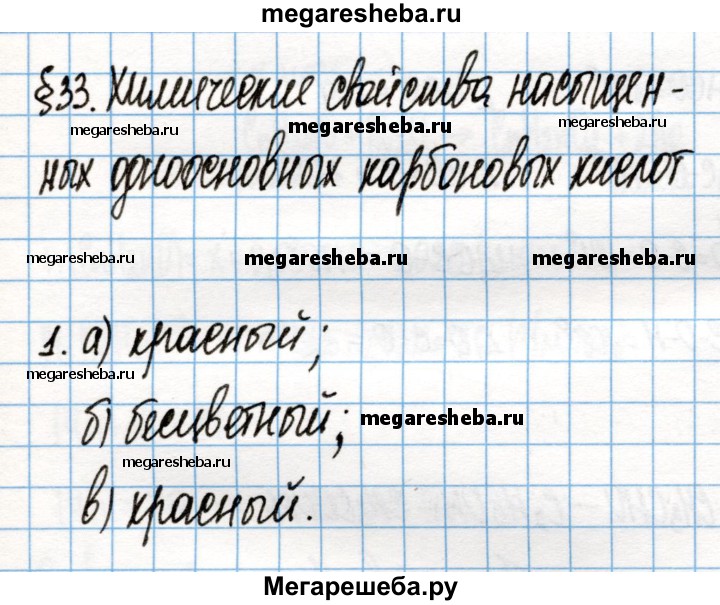 megaresheba.ru
§33. Химические свойства насыщен-
megaresheba.ru megaresheba.ru megaresheba.ru
ных одноосновных карбоновых кислот
megaresheba.ru megaresheba.ru megaresheba.ru
1. а) красный;
megaresheba.ru
б) бесцветный; megaresheba.ru
megaresheba.ru
в) красный.
Мегарешеба.ру